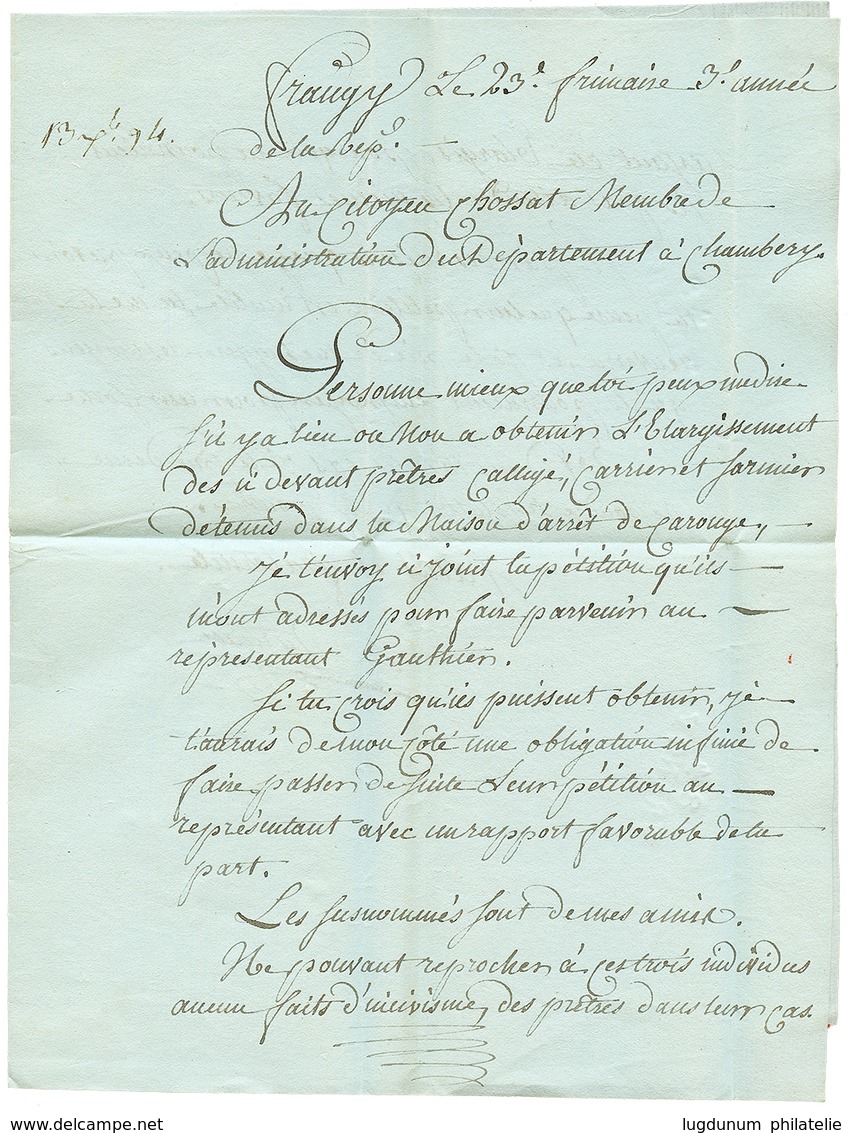 frangy Le 23e. frimaire 3e. année
13 xbre. 94.
de la Rep.e
Au Citoyen Chossat Membre de
L'administration du Département à Chambery.
Personne mieux que toi peux me dire
S'il y a lieu ou Non a obtenir L'Elargissement
des ci devant prêtres Callijé, Carrier et Sarmier
détenus dans la Maison d'arrêt de Carouge,
je t'envoy ci joint la pétition qu'ils
m'ont adressés pour faire parvenir au
représentant Gauthier.
Si tu Crois qu'ils puissent obtenir, je
t'aurais de mon Côté une obligation infinie de
faire passer de Suite Leur pétition au
représentant avec un rapport favorable de ta
part.
Les susnommés sont de mes amis.
Ne pouvant reprocher à Ces trois individus
aucun faits d'incivisme, des prêtres dans leur Cas.
www.delcampe.net
lugdunum philatelie